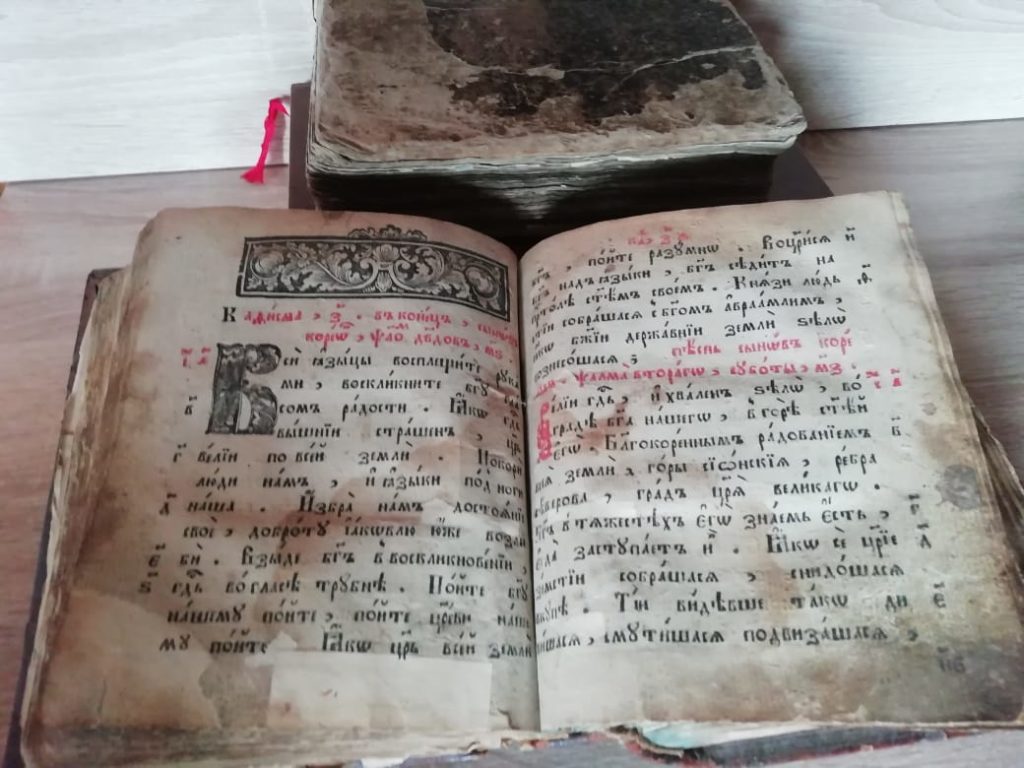 Каѳисма, з҃ . въ конецъ, сыновъ
корео́ѡ, ѱало́м дв҃довъ, м҃ѕ .
Вси ꙗ҆зы́цы восплещи́те рука
ми, воскли́кните бг҃у гла
в҃ сомъ ра́дости . Ꙗ҆́кѡ гд҃ь
вы́шнїи стра́шенъ, цр҃ь
г҃ ве́лїи по все́й земли̂ . Покори̂
лю́ди на́мъ, и҆ ꙗ҆зы́ки под но́ги
д҃ на́ша . И҆збра̀ на́мъ достоѧ́нїе
своѐ, добро́ту і҆а́кѡвлю ю҆́же возлю
е҃ бѝ . Взы́де бг҃ъ в воскликнове́нїи,
ѕ҃ гд҃ь во́ гла́сѣ тру́бнѣ . По́йте бг҃у
на́шему по́йте, по́йте цр҃еви на́ше
му по́йте Ꙗ҆́кѡ цр҃ь все́й земли̂
бг҃ъ, по́йте разу́мнѡ . Воцр҃и́сѧ
бг҃ъ над ꙗ҆зы́ки, бг҃ъ сѣди́тъ на
пр҃то́лѣ ст҃ѣ́мъ свое́мъ . Кнѧ́зи лю́дь
стїи собра́шасѧ с бг҃омъ а҆враа́млимъ,
ꙗ҆́кѡ бж҃їи держа́внїи земли̂ ѕѣлѡ̀
вознесо́шасѧ ; пѣ́снь сыно́въ коре́
ѱалма̀ втора́гѡ, субо́ты, м҃з .
Ве́лїи гд҃ь, и҆ хва́ленъ ѕѣлѡ̀, во́
гра́дѣ бг҃а на́шегѡ, в горѣ̀ ст҃ѣ́й
є҆гѡ̀ . Благокоре́ннымъ ра́дованїемъ в҃
всеѧ̀ земли̂, го́ры сїѡ́нскїѧ, ре́бра
сѣ́верова, гра́дъ цр҃ѧ̀ вели́кагѡ .
Бг҃ъ в тѧ́жестѣхъ є҆гѡ̀ зна́емь є҆́сть, г҃
е҆гда̀ заступа́етъ и҆̀ . Ꙗ҆́кѡ се цр҃їе д҃
зе́мстїи собра́шасѧ, снидо́шасѧ
вку́пѣ . Ті́и ви́дѣвше та́кѡ ди е҃
ви́шасѧ, смути́шасѧ подвиза́шасѧ,